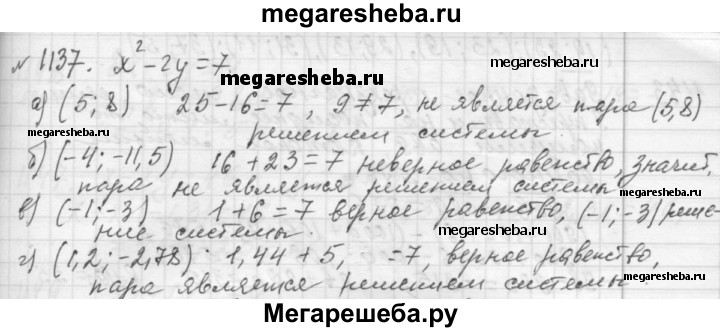 megaresheba.ru
№ 1137. x² - 2y = 7
megaresheba.ru
а) (5; 8) 25-16=7, 9≠7, не является пара (5,8)
megaresheba.ru решением системы. megaresheba.ru
б) (-4; -11,5) 16+23=7 неверное равенство, значит,
пара не является решением системы megaresheba.ru
в) (-1; -3) 1+6=7 верное равенство, (-1; -3) реше-
ние системы. megaresheba.ru
г) (1,2; -2,78) 1,44+5, =7, верное равенство,
пара является решением системы. megaresheba.ru
Мегарешеба.ру